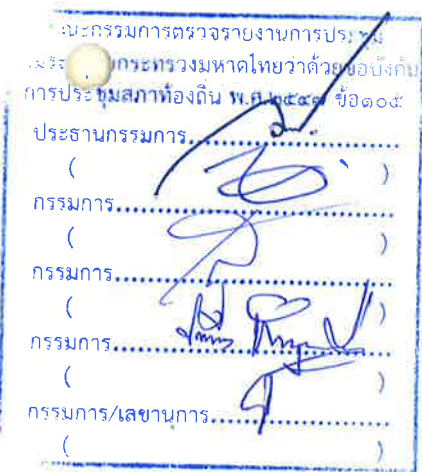 คณะกรรมการตรวจรายงานการประชุม
กระทรวงมหาดไทยว่าด้วยข้อบังคับ
การประชุมสภาท้องถิ่น พ.ศ.๒๕๔๗ ข้อ๑๐๕
ประธานกรรมการ....................
( )
กรรมการ....................
( )
กรรมการ....................
( )
กรรมการ....................
( )
กรรมการ/เลขานุการ....................
( )